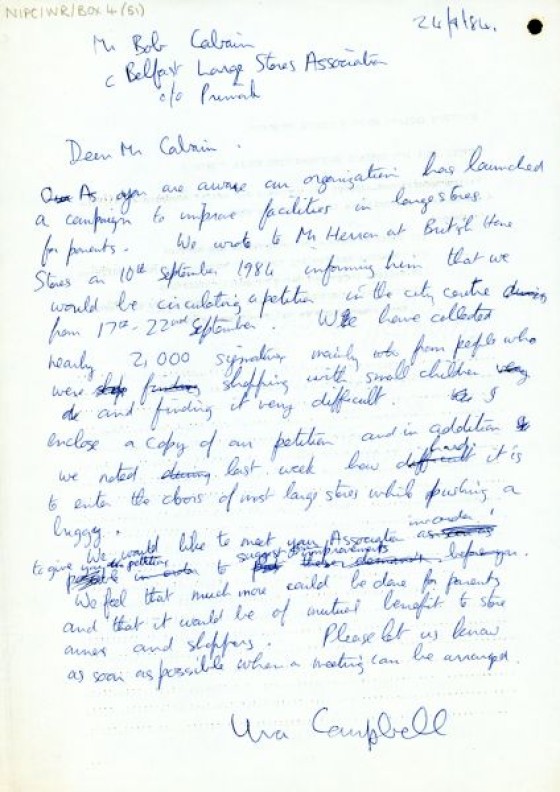 NIPC/WR/BOX 4 (51)
24/9/84.
Mr Bob Calvain
c Belfast Large Stores Association
c/o Primark
Dear Mr Calvain.
As you are aware our organization has launched
a campaign to improve facilities in large stores
for parents. We wrote to Mr Herron at British Home
Stores on 10th September 1984 informing him that we
would be circulating a petition in the city centre during
from 17th - 22nd September. We have collected
nearly 2,000 signatures mainly from people who
were finding shopping with small children very
and finding it very difficult. I
enclose a copy of our petition and in addition
we noted during last week how difficult hard it is
to enter the doors of most large stores while pushing a
buggy.
We would like to meet your Association as soon as in order
to give you the petition
possible in order to suggest improvements before you.
We feel that much more could be done for parents
and that it would be of mutual benefit to store
owners and shoppers. Please let us know
as soon as possible when a meeting can be arranged.
Una Campbell